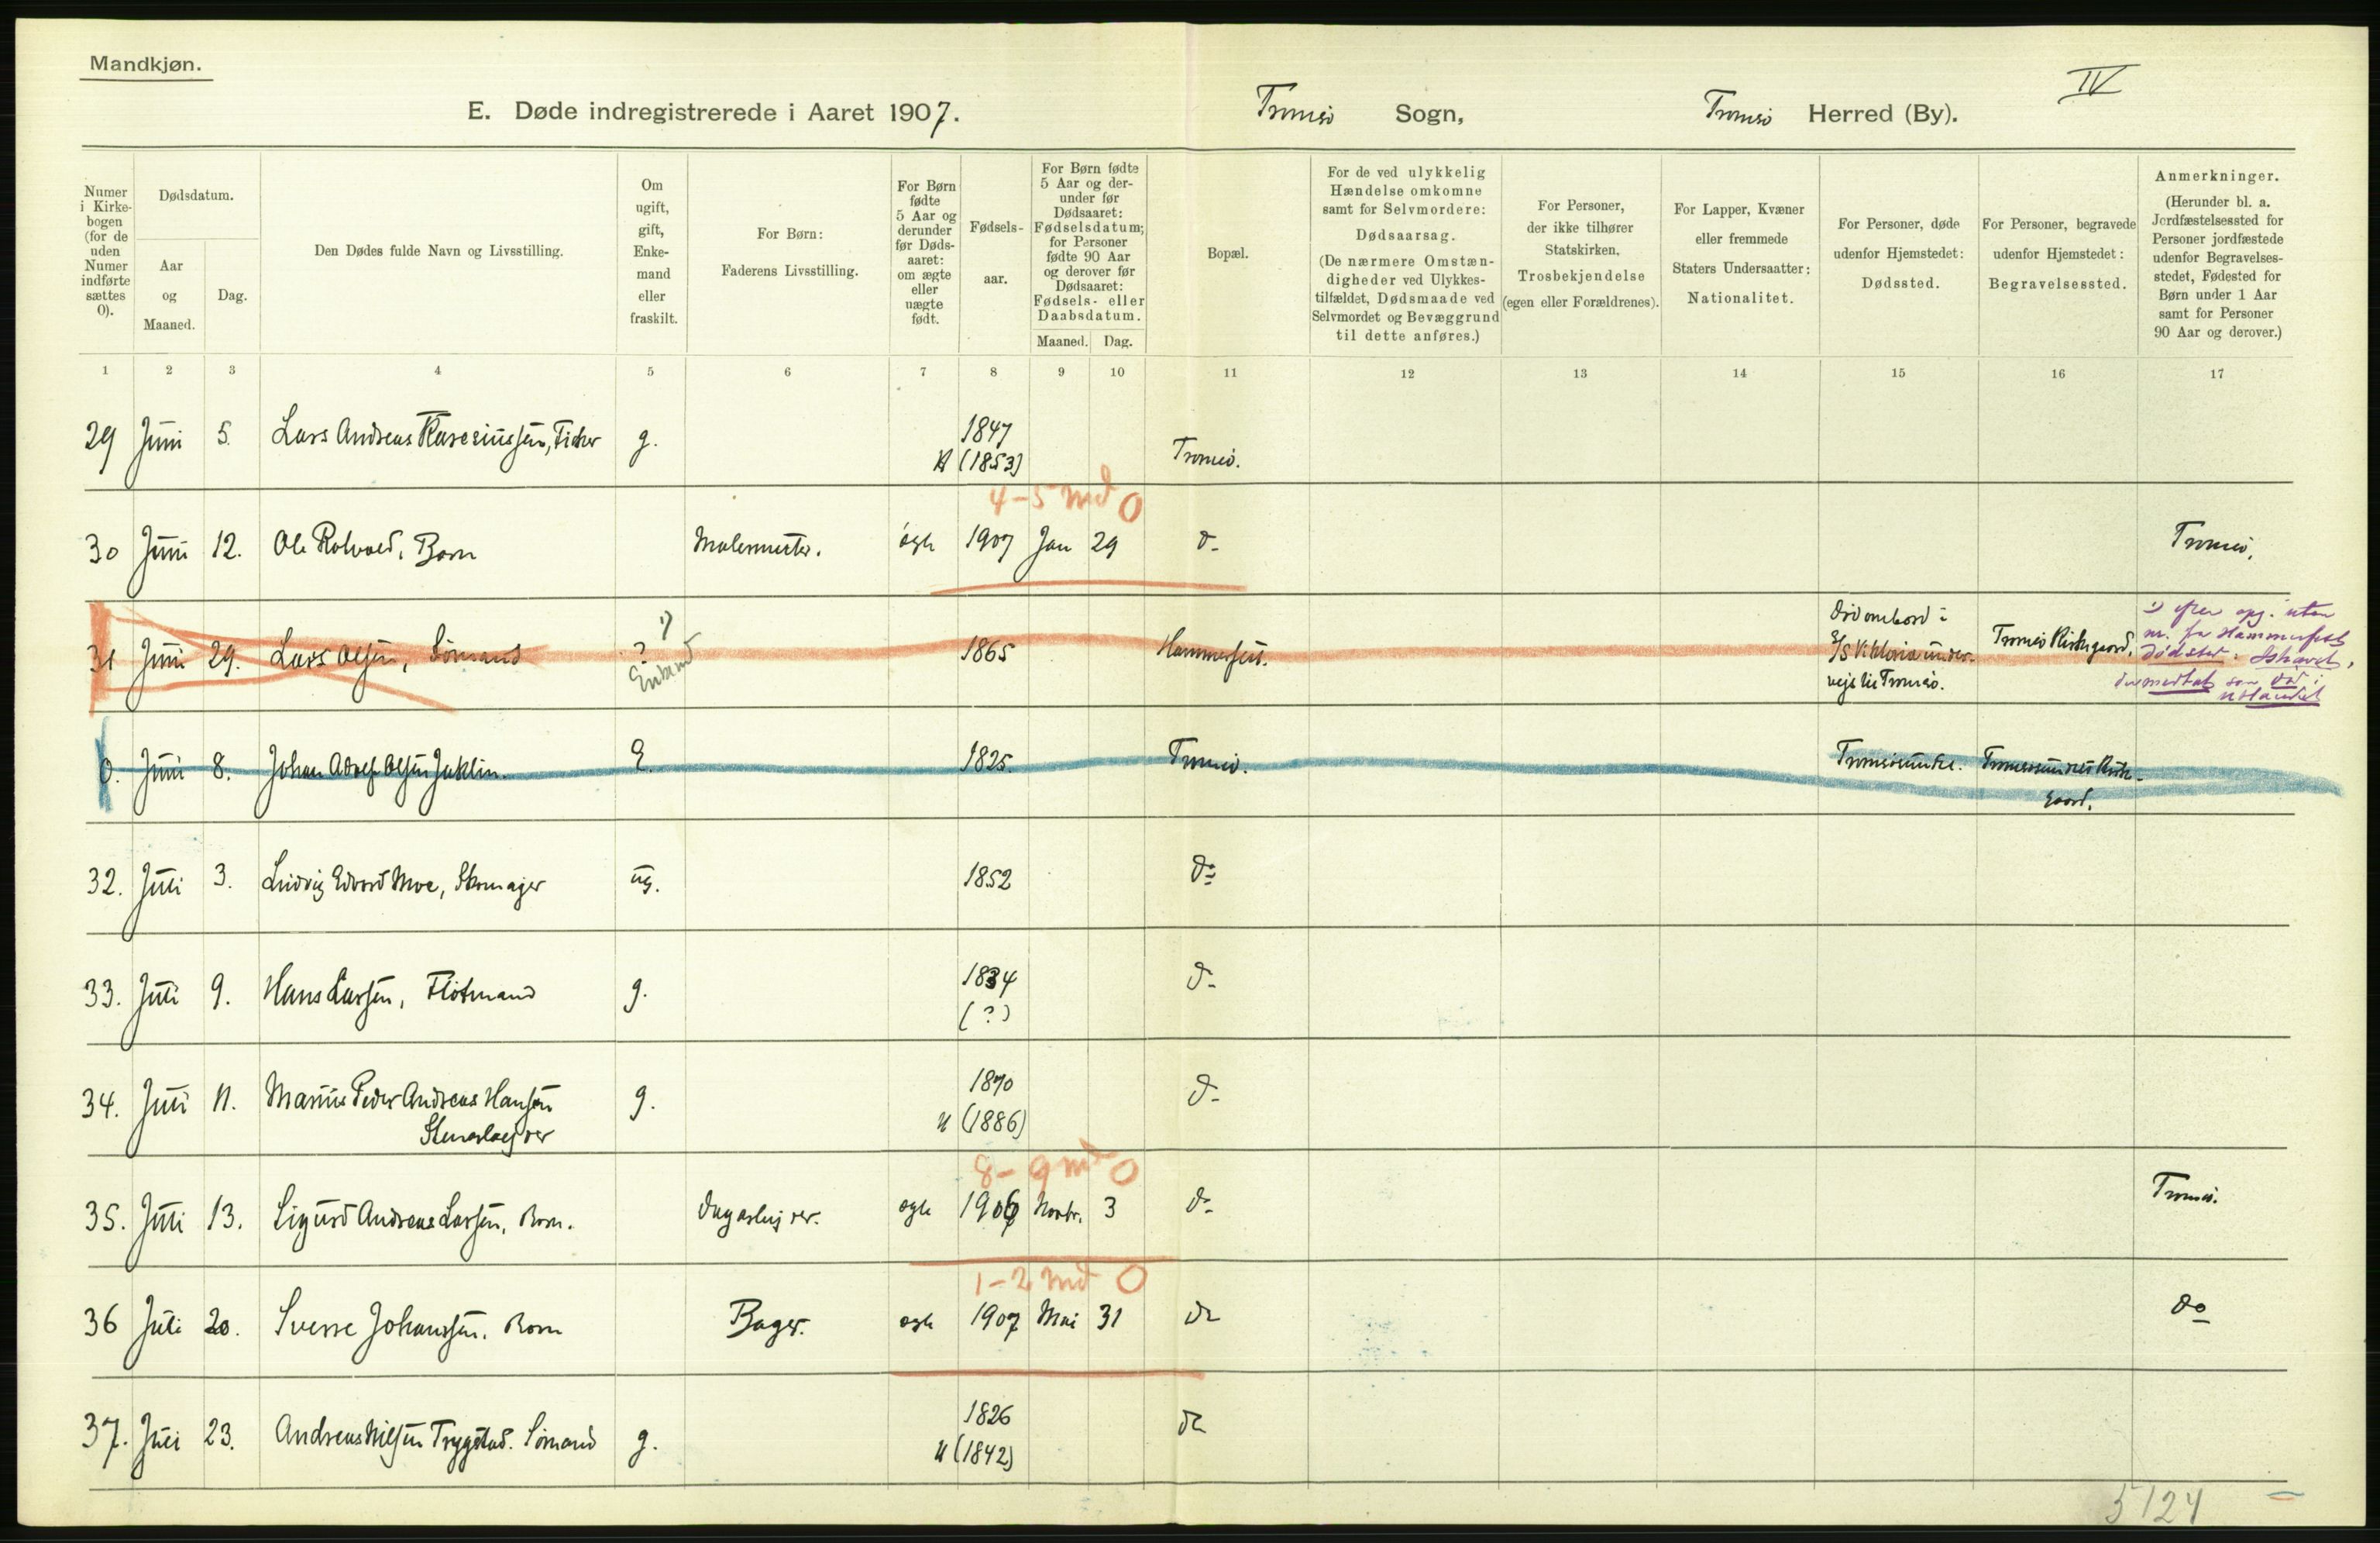 Mandkjøn.
IV
E. Døde indregistrerede i Aaret 1907.
Tromsø Sogn,
Tromsø Herred (By).
Numer
i Kirke-
bogen
(for de
uden
Numer
indførte
sættes
0).
Dødsdatum.
Aar
og
Maaned.
Dag.
Den Dødes fulde Navn og Livsstilling.
Om
ugift,
gift,
Enke-
mand
eller
fraskilt.
For Børn:
Faderens Livsstilling.
For Børn
fødte
5 Aar og
derunder
før Døds-
aaret:
om ægte
eller
uægte
født.
Fødsels-
aar.
For Børn fødte
5 Aar og der-
under før
Dødsaaret:
Fødselsdatum;
for Personer
fødte 90 Aar
og derover før
Dødsaaret:
Fødsels- eller
Daabsdatum.
Maaned. Dag.
Bopæl.
For de ved ulykkelig
Hændelse omkomne
samt for Selvmordere:
Dødsaarsag.
(De nærmere Omstæn-
digheder ved Ulykkes-
tilfældet, Dødsmaade ved
Selvmordet og Bevæggrund
til dette anføres.)
For Personer,
der ikke tilhører
Statskirken,
Trosbekjendelse
(egen eller Forældrenes).
For Lapper, Kvæner
eller fremmede
Staters Undersaatter:
Nationalitet.
For Personer, døde
udenfor Hjemstedet:
Dødssted.
For Personer, begravede
udenfor Hjemstedet:
Begravelsessted.
Anmerkninger.
(Herunder bl. a.
Jordfæstelsessted for
Personer jordfæstede
udenfor Begravelses-
stedet, Fødested for
Børn under 1 Aar
samt for Personer
90 Aar og derover.)
1 2 3 4 5 6 7 8 9 10 11 12 13 14 15 16 17
29 Juni 5. Lars Andreas g. 1847 Tromsø.
(1853)
4-5 md 0
30 Juni 12. Ole Rolvaed, Barn Malermester. ægte 1907 Jan 29 d- Tromsø.
31 Juni 29. Lars Olsen, Sømand ? 1) 1865 Hammerfest.
Død ombord i
S/S Viktoria under-
vejs til Tromsø.
Tromsø Kirkegaard.
1) efter opg. uten
nr. fra Hammerfest
Dødssted: Ishavet,
medtat som død i
utlandet
0. Juni 8. Johan Adolf Olsen Jaklin. E. 1825. Tromsø. Tromsøsundet. Tromsøsundets Kirke-
gaard.
32. Juli 3. Ludvig Edvard Moe, Skomager ug. 1852 do
33. Juli 9. Hans Larsen, Flötmand g. 1834 d-
(?)
34. Juli 11. Marius Peder Andreas Hansen g. 1870 d-
(1886)
8-9 md 0
35. Juli 13. Sigurd Andreas Larsen, Barn. Dagarbejder. ægte 1906 Novbr. 3 d- Tromsø.
1-2 md 0
36 Juli 20. Sverre Johansen. Barn Bager. ægte 1907 Mai 31 do do
37. Juli 23. Andreas Nilsen Trygstad. Sømand g. 1826 do
(1842)
5124